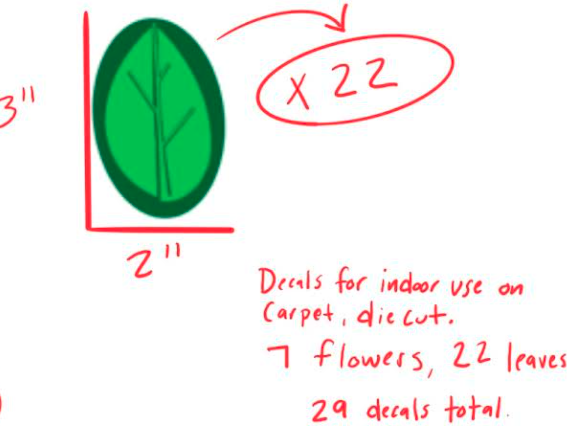 3"
x 22
2"
Decals for indoor use on
Carpet, die cut.
7 flowers, 22 leaves
29 decals total.